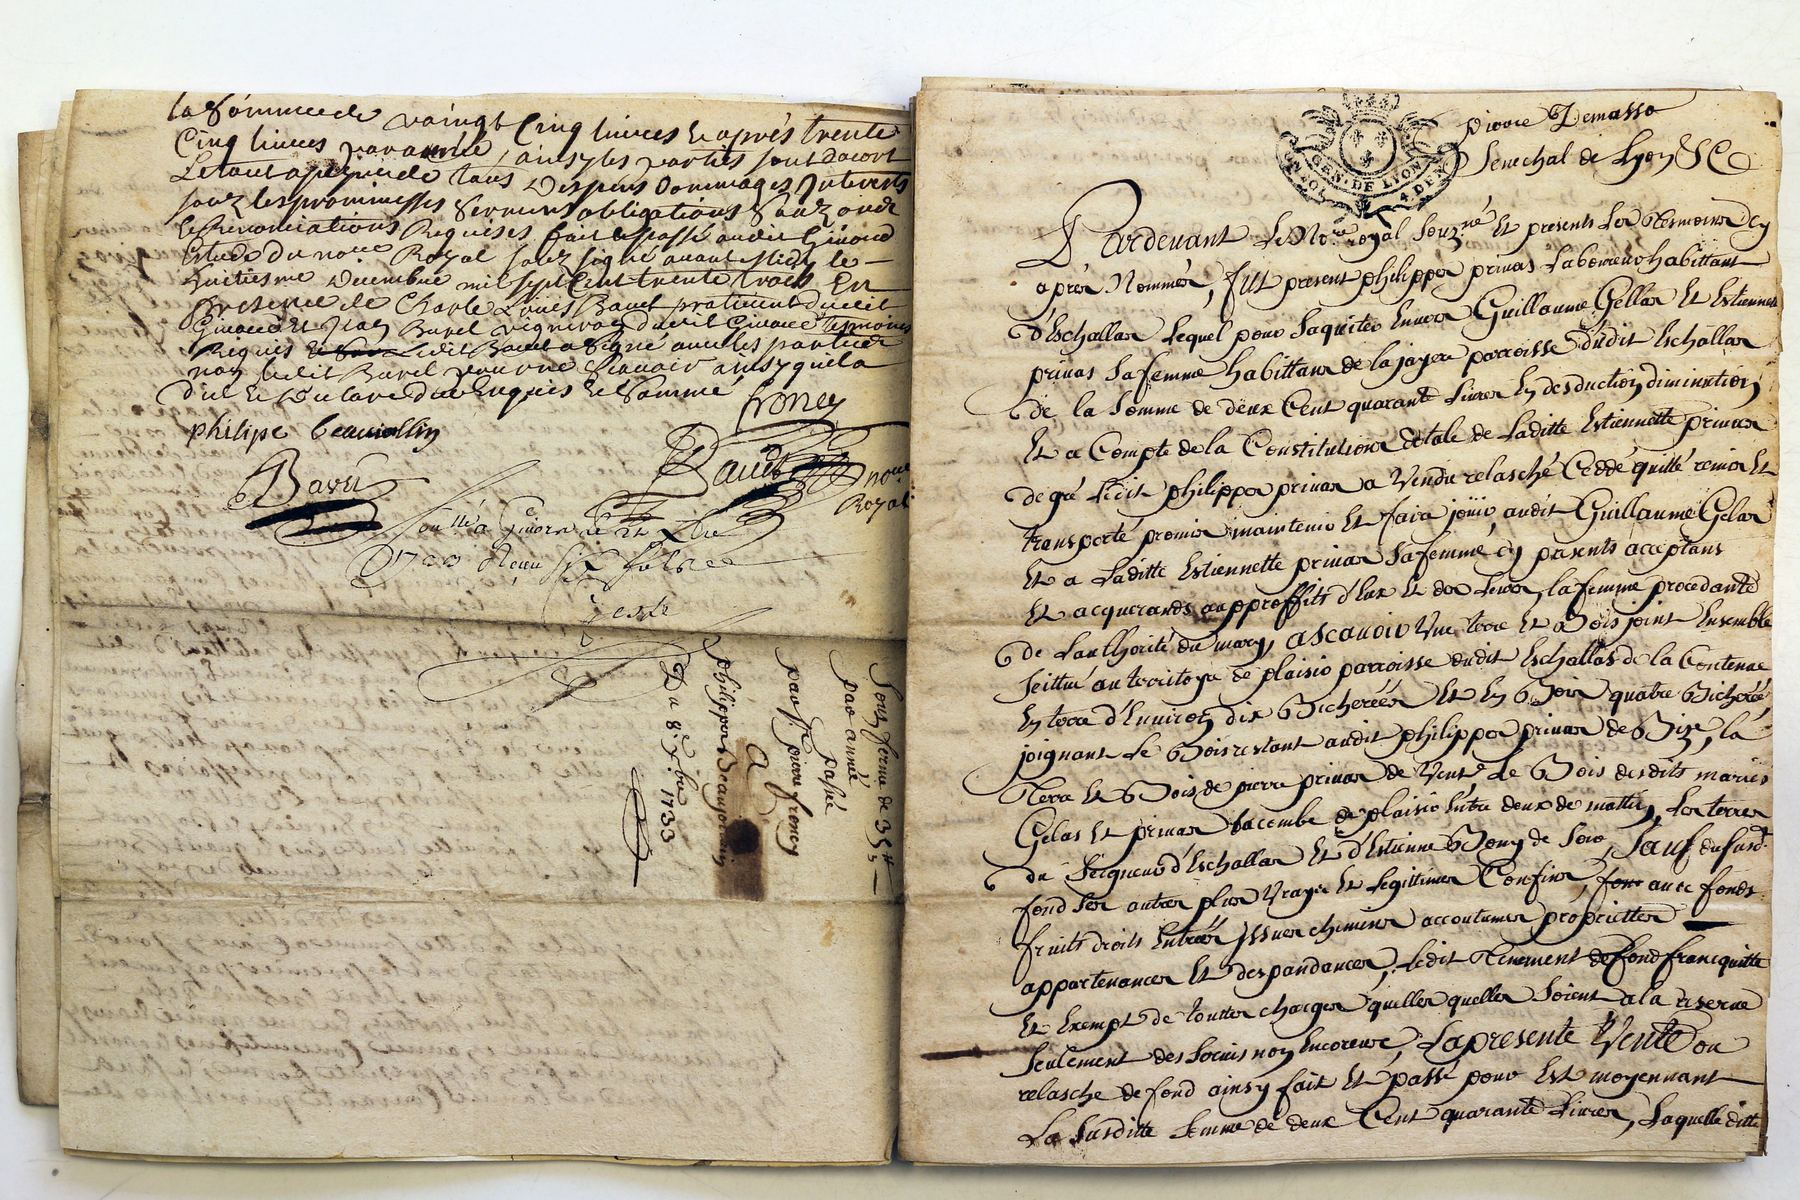 la Somme de vaingt Cinq livres et après trente
Cinq livres par année, ainsy les parties sont dacort
Le tout a peyne de tous Despens Dommages Interests
souz les prommesses serments obligations souz
et Renonciations Requises fait et passé audit Givord
Estude du no.re Royal souz signé avant Midy le
huitiesme Decembre mil sept Cent trente trois En
Presence de Charle Louis Bavet praticient dudit
Givord et Jean Burel vigneron dudit Givord tesmoins
Requis ledit Bavet a signé avec les parties
non ledit Burel pour ne scavoir ainsy quil a
dit et declaré de ce Enquis et Sommé
philipe beaujollin
froney
Bavet
Baudt
no.re
Royal
Con.llé a Givors le
1733 Reçu six solz
Souz ferme de 35 ₶
par année
passée
par S.r pierre froney
a
philippe Beaujollin
Du 8.e X.bre 1733
GEN. DE LYON
4 DEN
Pierre Demasso
Senechal de Lyon &C
Pardevant Le No.re royal Souz.né Et presents Les Tesmoins Cy
après Nommés, fut present philippe primas Laboureur habittant
d'Eschallas Lequel pour Saquiter Envers Guillaume Gellas Et Estiennette
primas Sa femme habittans de la jayere parroisse dudit Eschallas
de la Somme de deux Cent quarante Livres En desduction diminution
Et a Compte de la Constitution dotale de Laditte Estiennette primas
de gré Ledit philippe primas a Vendu relasché Ceddé quitté remis Et
transporté promis maintenir Et faire jouir, audit Guillaume Gelas
Et a Laditte Estiennette primas Sa femme Cy presents acceptans
Et acquerands au proffits d'Eux Et des Leurs, la femme procedante
de Lauthorité du mary, ascavoir Une terre Et Bois joint Ensemble
Seittué au territoire de plaisir parroisse dudit Eschallas de la Contenue
En terre d'Environ dix Bicherées Et En Bois quatre Bicherées,
joignant Le Bois restant audit philippe primas de Bize, la
Terre Et Bois de pierre primas de Vent, Le Bois desdits mariés
Gelas Et primas Lacombe de plaisir Entre deux de mattin, Les terres
du Seigneur d'Eschallas Et d'Estienne Bony de Soir, Sauf dususd.
fond Ses autres plus Vrayes Et Legittimes Confins, avec fonds
fruits droits Entrées Issues chemins accoutumés proprietter
appartenances Et despandances, Ledit Tenement de fond franc quitte
Et Exempt de touttes charges quelles quelles Soient a la reserve
Seulement des Servis non Encoreue, La presente Vente ou
relasche de fond ainsy fait Et passé pour Est moyennant
La Susditte Somme de deux Cent quarante Livres, Laquelle ditte